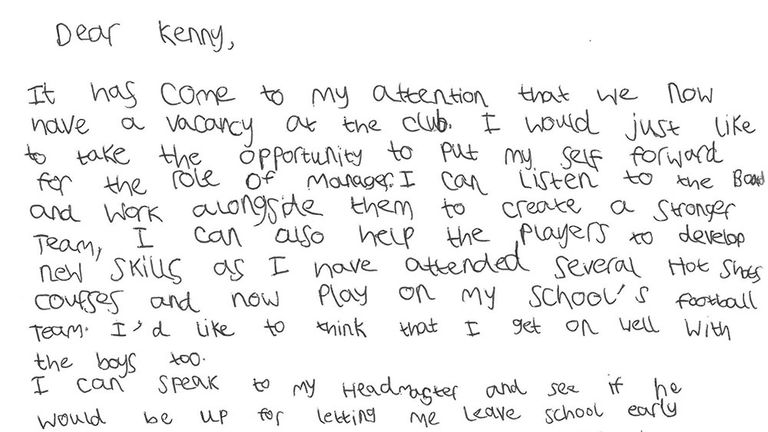 Dear Kenny,
It has come to my attention that we now
have a vacancy at the club. I would just like
to take the opportunity to put my self forward
for the role of manager. I can listen to the Board
and work alongside them to create a stronger
Team, I can also help the players to develop
new skills as I have attended several Hot Shots
courses and now play on my school's football
Team. I'd like to think that I get on well with
the boys too.
I can speak to my Headmaster and see if he
would be up for letting me leave school early